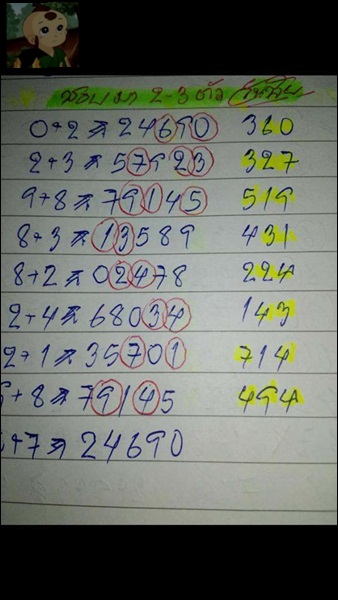 ชอบมา 2-3 ตัว
0+2 => 24690 360
2+3 => 57923 327
9+8 => 79145 519
8+3 => 13589 431
8+2 => 02478 224
2+4 => 68034 143
2+1 => 35701 714
+8 => 79145 494
+7 => 24690